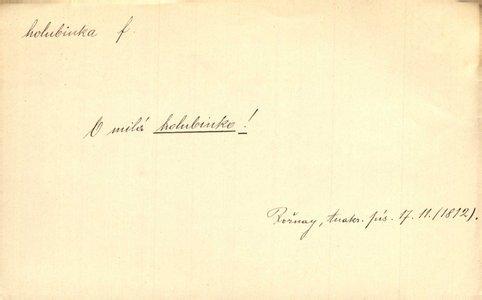 holubinka f.
O milá holubinko!
Rožnay, Anakr. pís. 17. 11. (1812).